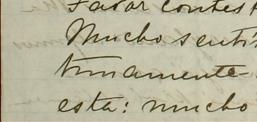 Favor contest
Mucho senti
timamente
esta: mucho